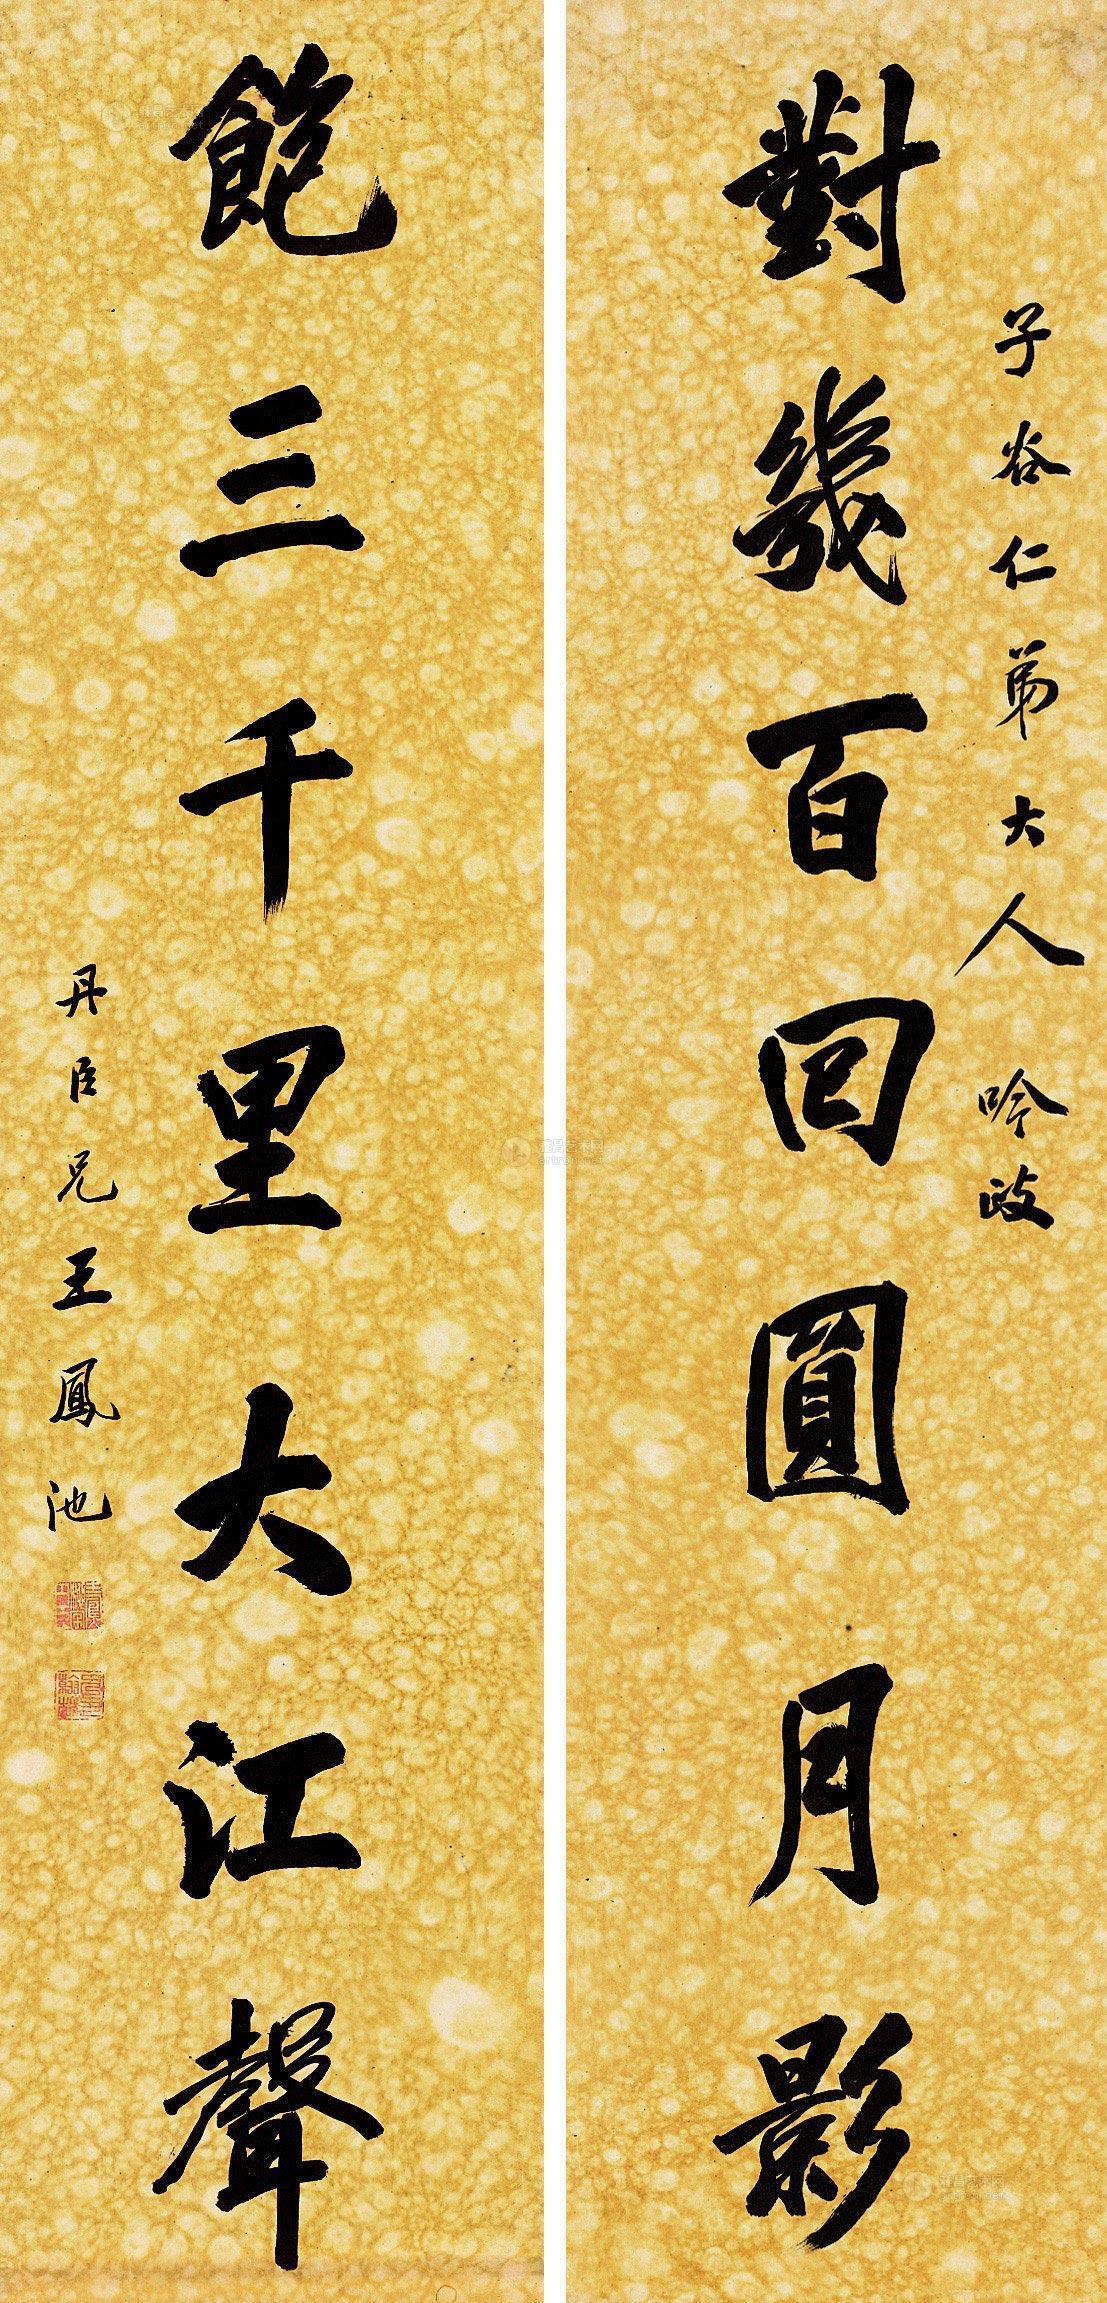 子谷仁弟大人吟政
對幾百回圓月影
飽三千里大江聲
丹臣兄王鳳池
雅昌艺术网
artron.net